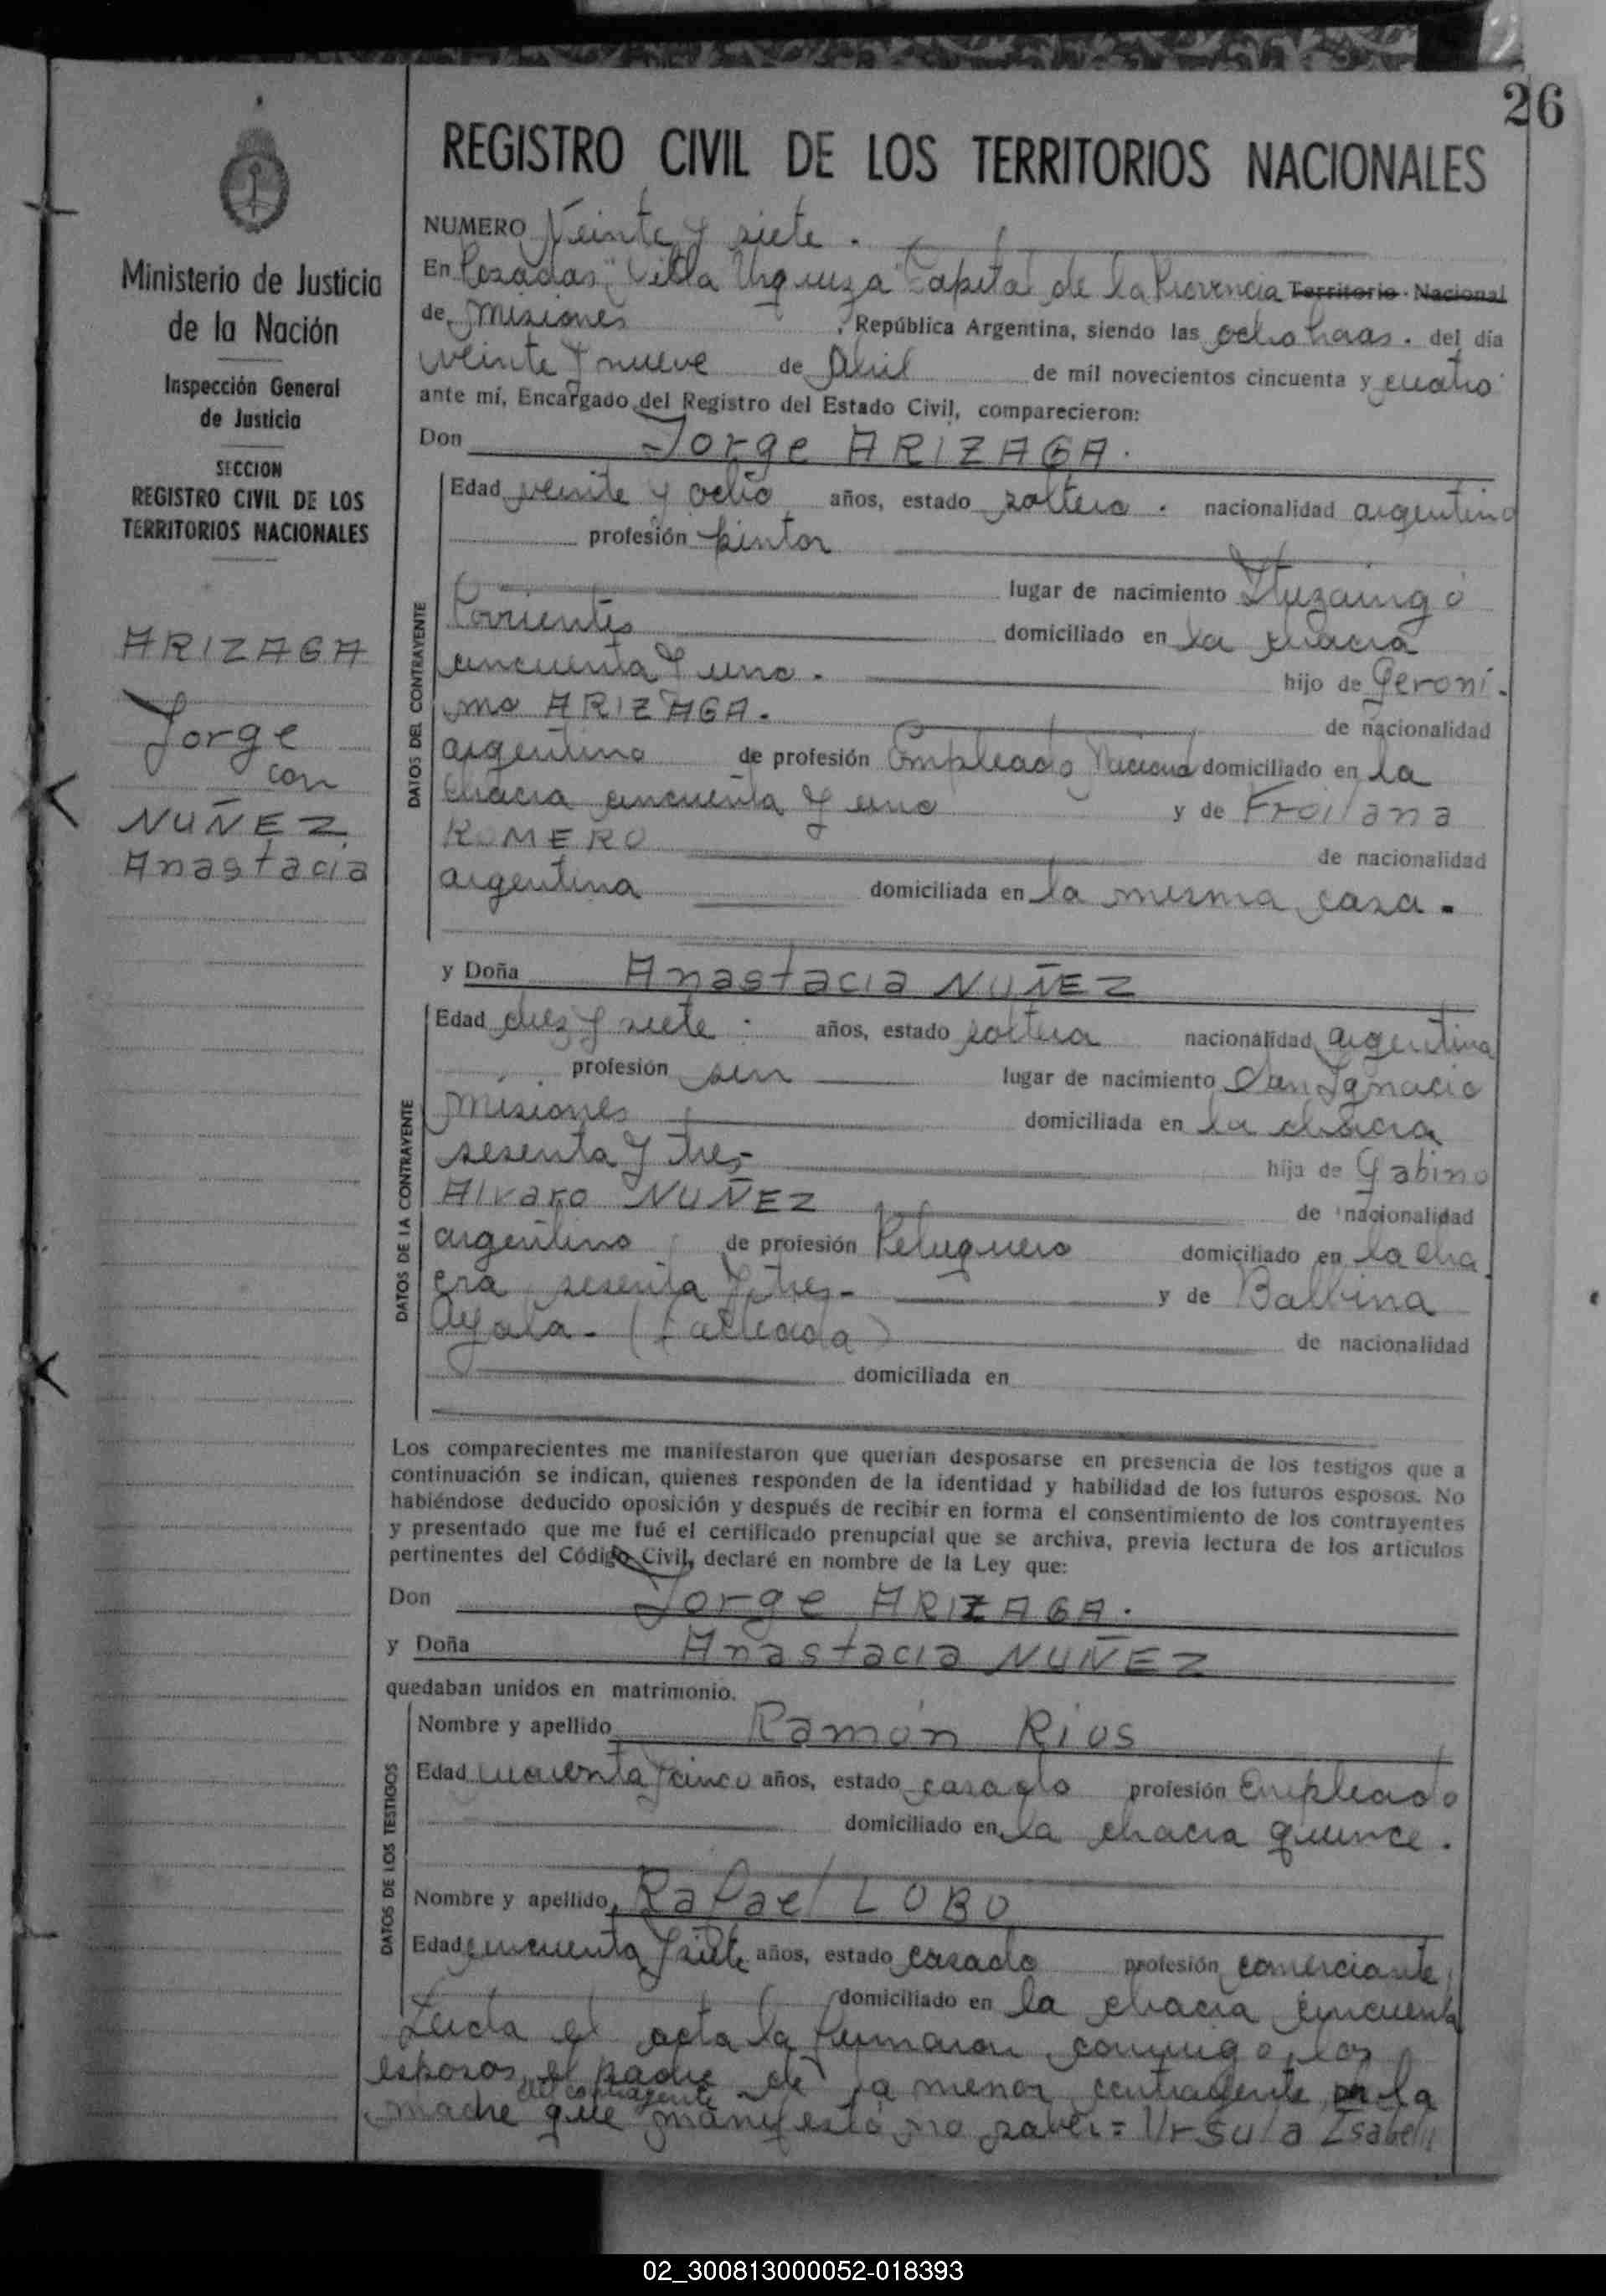 26
REGISTRO CIVIL DE LOS TERRITORIOS NACIONALES
Ministerio de Justicia
de la Nación
Inspección General
de Justicia
SECCION
REGISTRO CIVIL DE LOS
TERRITORIOS NACIONALES
ARIZAGA
Jorge
con
NUÑEZ
Anastacia
NUMERO Veinte y siete.
En Posadas "Villa Urquiza" Capital de la Provincia Territorio Nacional
de Misiones, República Argentina, siendo las ocho horas. del día
veinte y nueve de Abril de mil novecientos cincuenta y cuatro
ante mí, Encargado del Registro del Estado Civil, comparecieron:
Don Jorge ARIZAGA.
DATOS DEL CONTRAYENTE
Edad veinte y ocho años, estado soltero. nacionalidad argentino
profesión pintor
lugar de nacimiento Ituzaingó
Corrientes domiciliado en la chacra
cincuenta y uno. hijo de Geroni-
mo ARIZAGA. de nacionalidad
argentino de profesión Empleado Nacional domiciliado en la
chacra cincuenta y uno y de Froilana
ROMERO de nacionalidad
argentina domiciliada en la misma casa.
y Doña Anastacia NUÑEZ
DATOS DE LA CONTRAYENTE
Edad diez y siete. años, estado soltera nacionalidad argentina
profesión sin lugar de nacimiento San Ignacio
Misiones domiciliada en la chacra
sesenta y tres- hija de Gabino
Alvaro NUÑEZ de nacionalidad
argentino de profesión Peluquero domiciliado en la cha-
cra sesenta y tres- y de Balbina
Ayala- (Fallecida) de nacionalidad
domiciliada en
Los comparecientes me manifestaron que querían desposarse en presencia de los testigos que a
continuación se indican, quienes responden de la identidad y habilidad de los futuros esposos. No
habiéndose deducido oposición y después de recibir en forma el consentimiento de los contrayentes
y presentado que me fué el certificado prenupcial que se archiva, previa lectura de los artículos
pertinentes del Código Civil, declaré en nombre de la Ley que:
Don Jorge ARIZAGA.
y Doña Anastacia NUÑEZ
quedaban unidos en matrimonio.
DATOS DE LOS TESTIGOS
Nombre y apellido Ramón Rios
Edad cuarenta y cinco años, estado casado profesión Empleado
domiciliado en la chacra quince.
Nombre y apellido, Rafael LOBO
Edad cincuenta y siete años, estado casado profesión comerciante
domiciliado en la chacra cincuenta
Leida el acta la firmaron conmigo, los
esposos, el padre de la menor contrayente, la
del contrayente
madre que manifestó no saber = Ursula Isabel
02_300813000052-018393